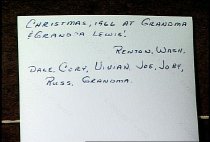 CHRISTMAS, 1966 AT GRANDMA
& GRAND'A LEWIS'.
RENTON, WASH.
DALE, CORY, VIVIAN, JOE, JOHY,
RUSS, GRANDMA.